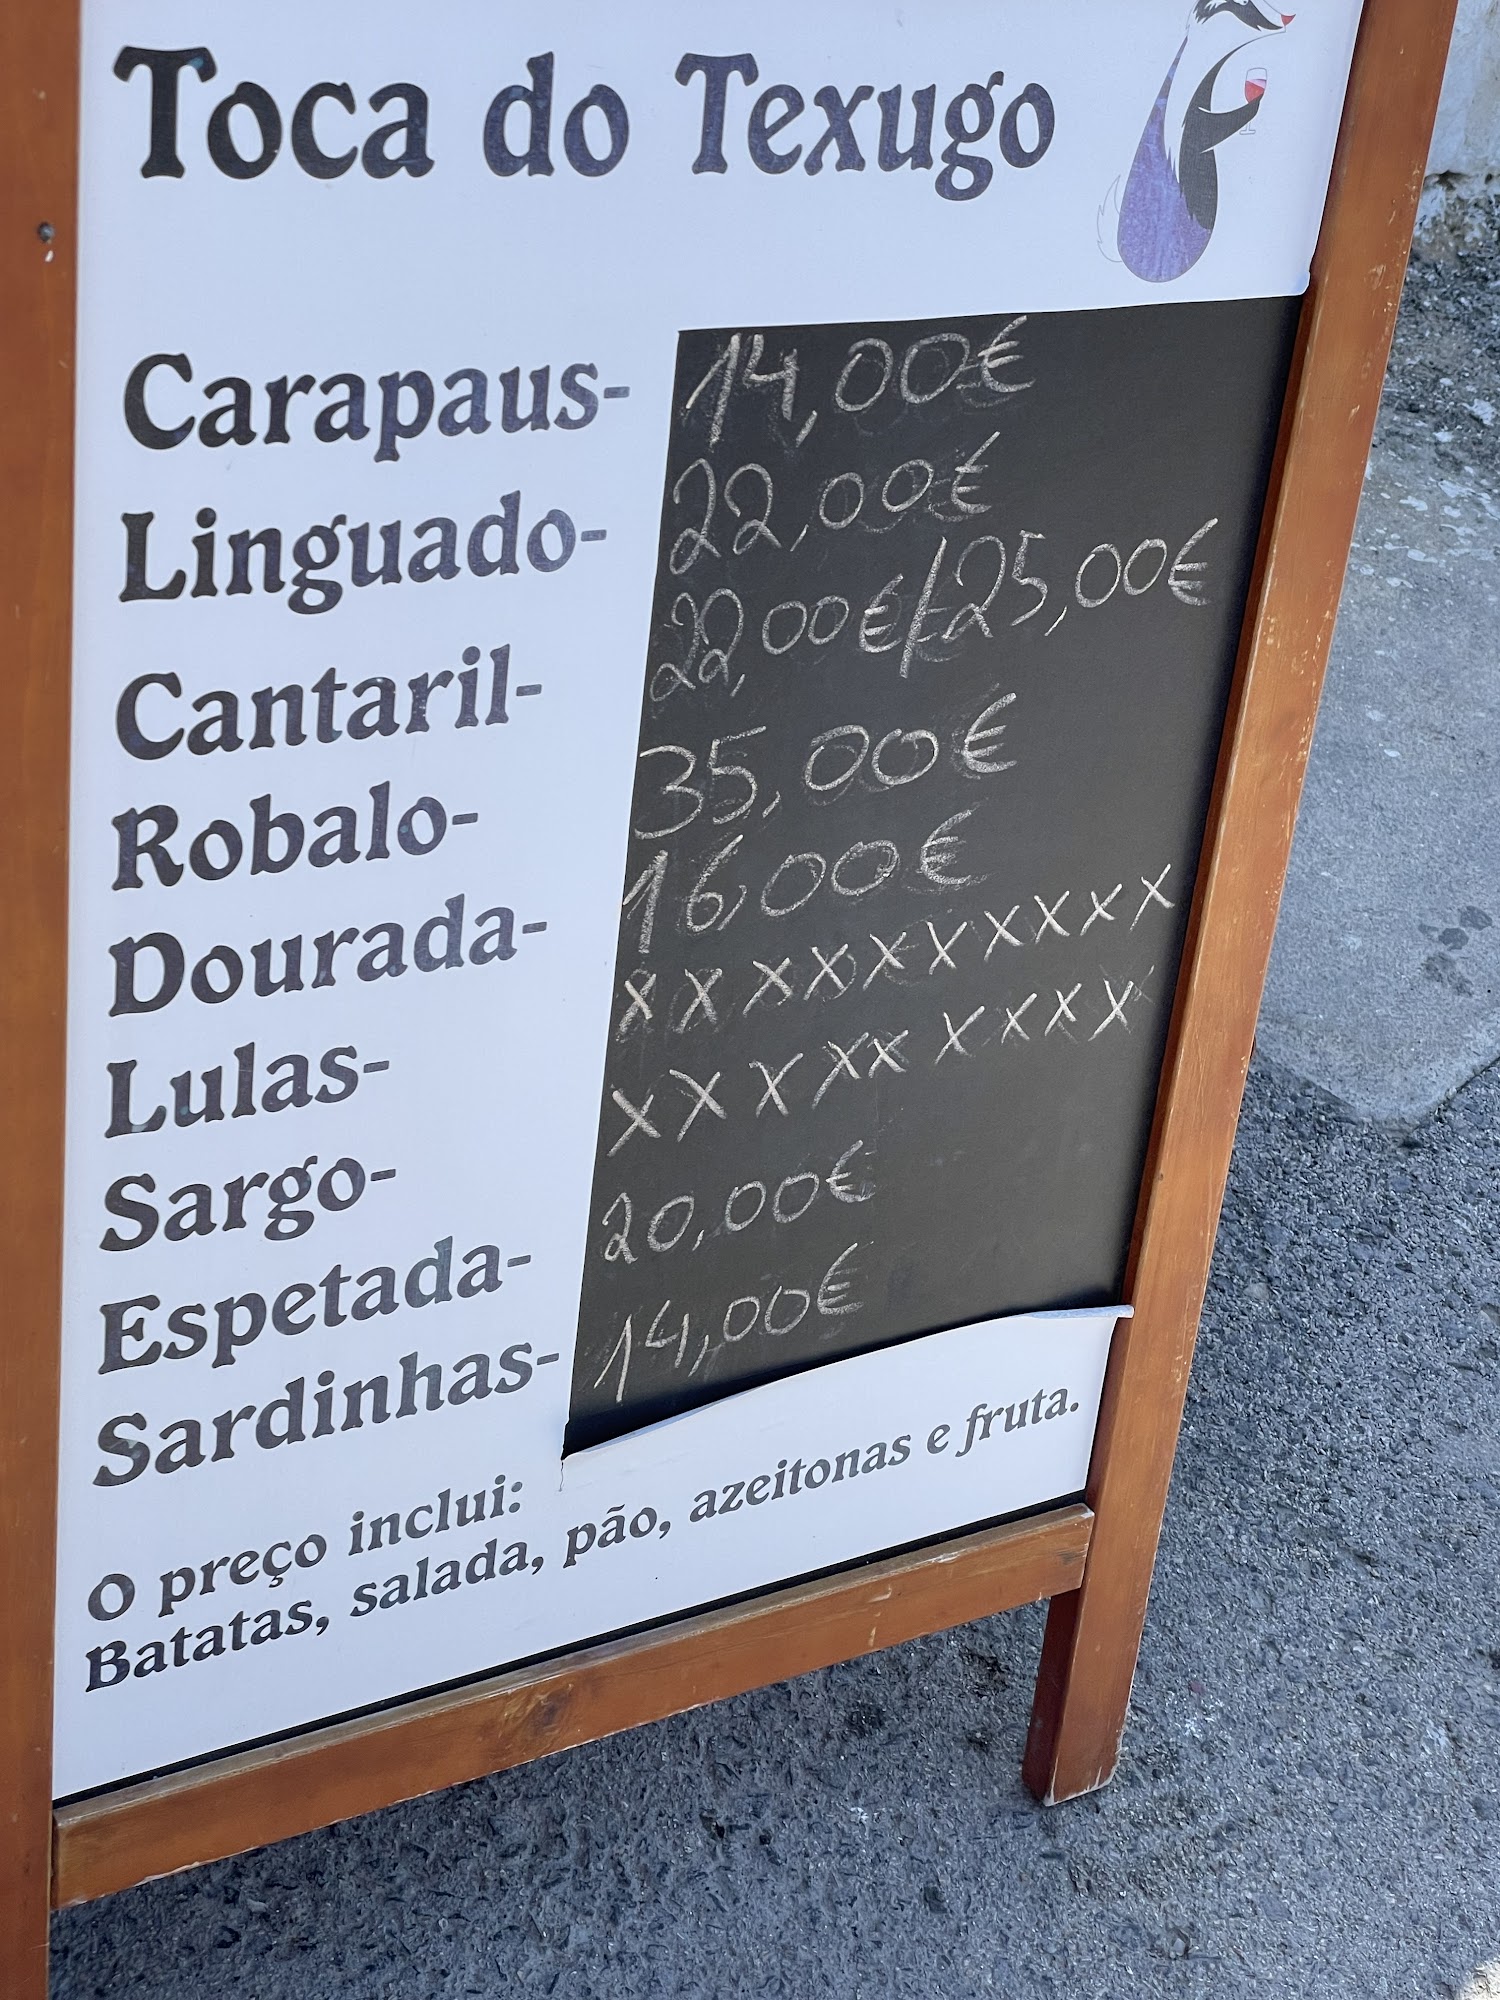 Toca do Texugo
Carapaus- 14,00€
Linguado- 22,00€
Cantaril- 22,00€/25,00€
Robalo- 35,00€
Dourada- 16,00€
Lulas- xxxxxxxxxx
Sargo- xxxxxxxxx
Espetada- 20,00€
Sardinhas- 14,00€
O preço inclui:
Batatas, salada, pão, azeitonas e fruta.